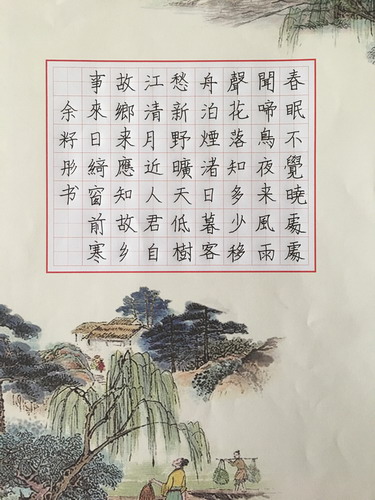 春眠不覺曉處處
聞啼鳥夜来風雨
聲花落知多少移
舟泊煙渚日暮客
愁新野曠天低樹
江清月近人君自
故鄉来應知故乡
事來日綺窗前寒
余籽彤书